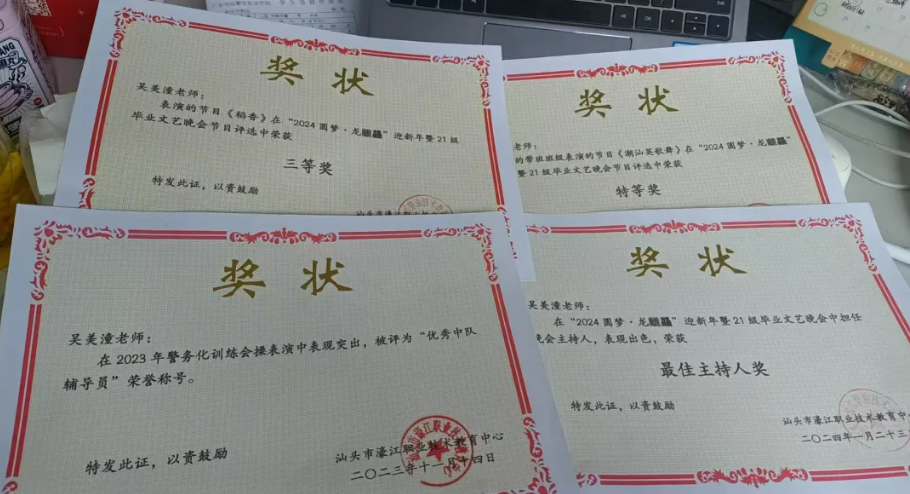 奖状
吴美潼老师：
表演的节目《稻香》在“2024圆梦·龙
”迎新年暨21级
毕业文艺晚会节目评选中荣获
三等奖
特发此证，以资鼓励
奖状
老师：
的带班班级表演的节目《潮汕英歌舞》在“2024圆梦·龙
”
暨21级毕业文艺晚会节目评选中荣获
特等奖
奖状
吴美潼老师：
在2023年警务化训练会操表演中表现突出，被评为“优秀中队
辅导员”荣誉称号。
特发此证，以资鼓励
汕头市濠江职业技术教育中心
二〇二三年十一月十四日
奖状
吴美潼老师：
在“2024圆梦·龙
”迎新年暨21级毕业文艺晚会中担任
晚会主持人，表现出色，荣获
最佳主持人奖
特发此证，以资鼓励
汕头市濠江职业技术教育中
二〇二四年一月二十三